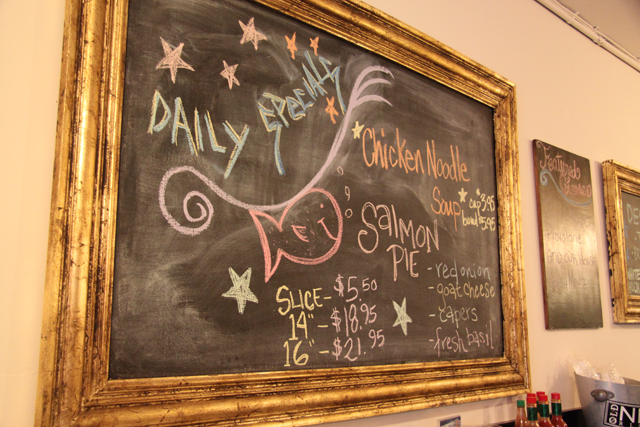 DAILY SPECIALS
Chicken Noodle
Soup cup 3.95
bowl $5.95
SALMON
PIE
- red onion
- goat cheese
- capers
- fresh basil
SLICE - $5.50
14" - $18.95
16" - $21.95